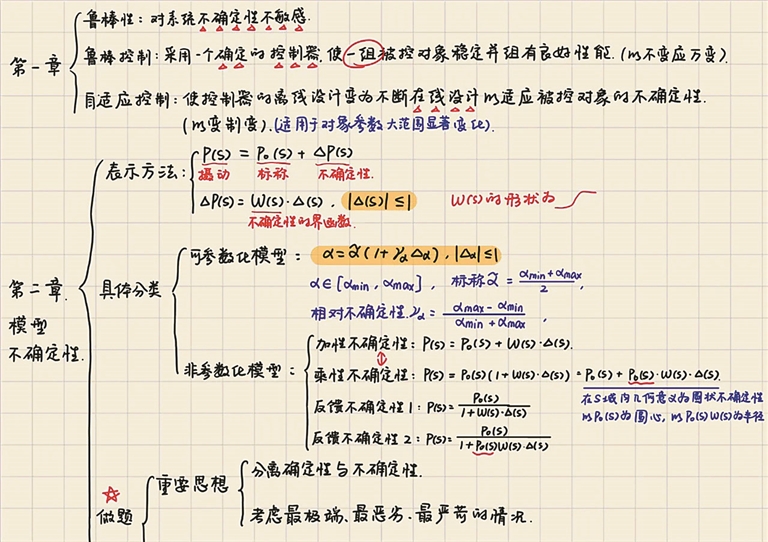 第一章
鲁棒性：对系统不确定性不敏感.
鲁棒控制：采用一个确定的控制器，使一组被控对象稳定并组有良好性能.（以不变应万变）.
自适应控制：使控制器的离线设计变为不断在线设计以适应被控对象的不确定性.
（以变制变）.（适用于对象参数大范围显著变化）.
第二章.
模型
不确定性.
表示方法：
P(s) = P₀(s) + ΔP(s)
摄动 标称 不确定性.
ΔP(s) = W(s)·Δ(s)， |Δ(s)| ≤ 1
不确定性的界函数.
W(s)的形状为
具体分类
可参数化模型： α = α̃(1+γαΔα)，|Δα|≤1
α∈[αmin, αmax]， 标称α̃ = (αmin+αmax)/2，
相对不确定性.γα = (αmax-αmin)/(αmin+αmax)，
非参数化模型：
加性不确定性：P(s) = P₀(s) + W(s)·Δ(s).
乘性不确定性：P(s) = P₀(s)(1+W(s)·Δ(s)) = P₀(s) + P₀(s)·W(s)·Δ(s).
在S域内几何意义为圆状不确定性
以P₀(s)为圆心，以P₀(s)W(s)为半径
反馈不确定性1：P(s) = P₀(s)/(1+W(s)·Δ(s))
反馈不确定性2：P(s) = P₀(s)/(1+P₀(s)W(s)·Δ(s))
做题
重要思想
分离确定性与不确定性.
考虑最极端、最恶劣、最严苛的情况.